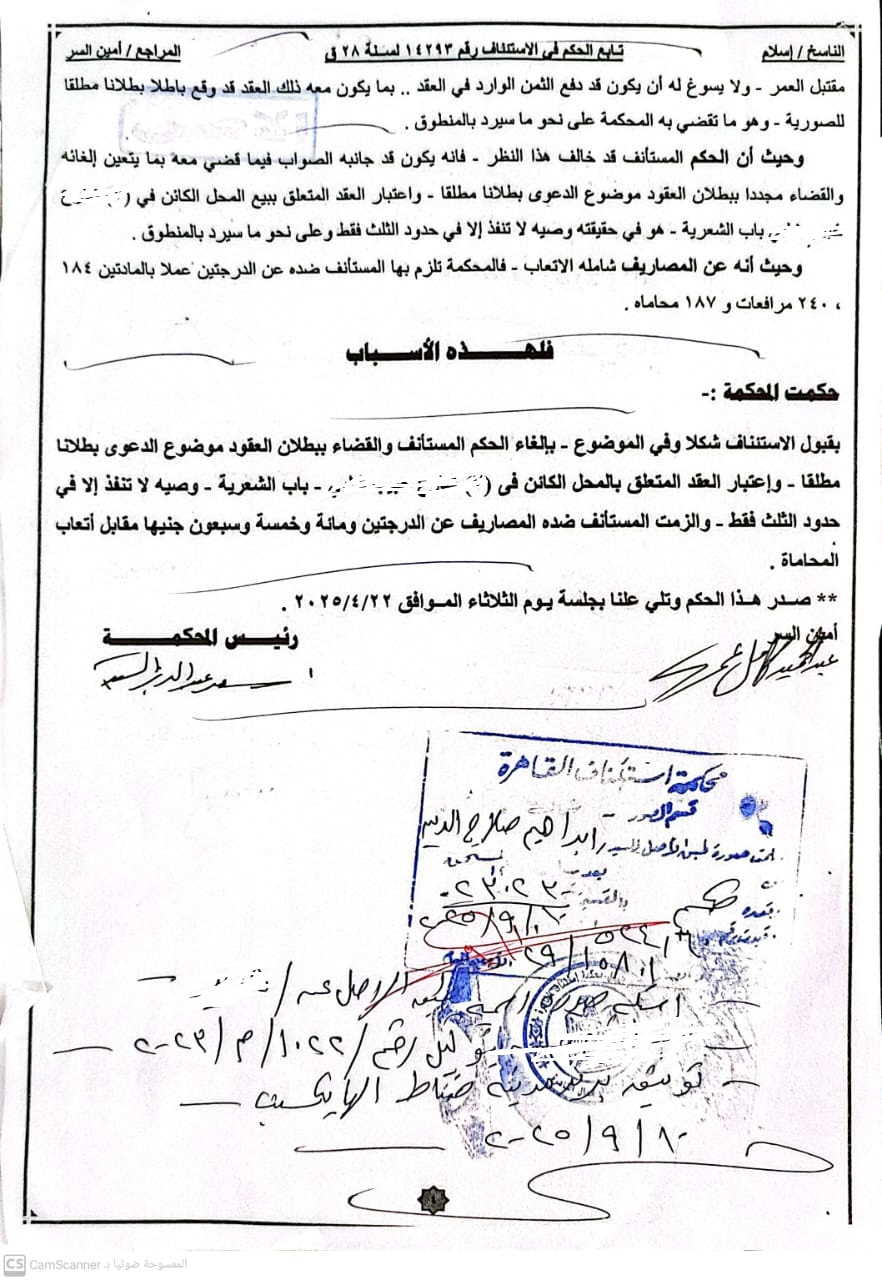 الناسخ / إسلام
تابع الحكم في الاستئناف رقم ١٤٢٩٣ لسنة ٢٨ ق
المراجع / أمين السر
مقتبل العمر – ولا يسوغ له أن يكون قد دفع الثمن الوارد في العقد .. بما يكون معه ذلك العقد قد وقع باطلا بطلانا مطلقا
للصورية – وهو ما تقضي به المحكمة على نحو ما سيرد بالمنطوق .
وحيث أن الحكم المستأنف قد خالف هذا النظر – فانه يكون قد جانبه الصواب فيما قضي معه بما يتعين إلغائه
والقضاء مجددا ببطلان العقود موضوع الدعوى بطلانا مطلقا – واعتبار العقد المتعلق ببيع المحل الكائن في (
باب الشعرية – هو في حقيقته وصيه لا تنفذ إلا في حدود الثلث فقط وعلى نحو ما سيرد بالمنطوق .
وحيث أنه عن المصاريف شامله الاتعاب – فالمحكمة تلزم بها المستأنف ضده عن الدرجتين عملا بالمادتين ١٨٤
، ٢٤٠ مرافعات و ١٨٧ محاماه .
فلهــــــذه الأســــباب
حكمت المحكمة :-
بقبول الاستئناف شكلا وفي الموضوع – بإلغاء الحكم المستأنف والقضاء ببطلان العقود موضوع الدعوى بطلانا
مطلقا – وإعتبار العقد المتعلق بالمحل الكائن فى ( – باب الشعرية – وصيه لا تنفذ إلا في
حدود الثلث فقط – والزمت المستأنف ضده المصاريف عن الدرجتين ومائة وخمسة وسبعون جنيها مقابل أتعاب
المحاماة .
** صدر هذا الحكم وتلي علنا بجلسة يوم الثلاثاء الموافق ٢٠٢٥/٤/٢٢ .
أمين السر
رئيــس المحكمــــة
محكمة استئناف القاهرة
قسم الصور
ابراهيم صلاح الدين
حكم
الأصل عنه /
توكيل رقم / ١٠٢٢ / م / ٢٠٢٣
توثيق
٢٠٢٥/٩/١٠
CS CamScanner الممسوحة ضوئيا بـ